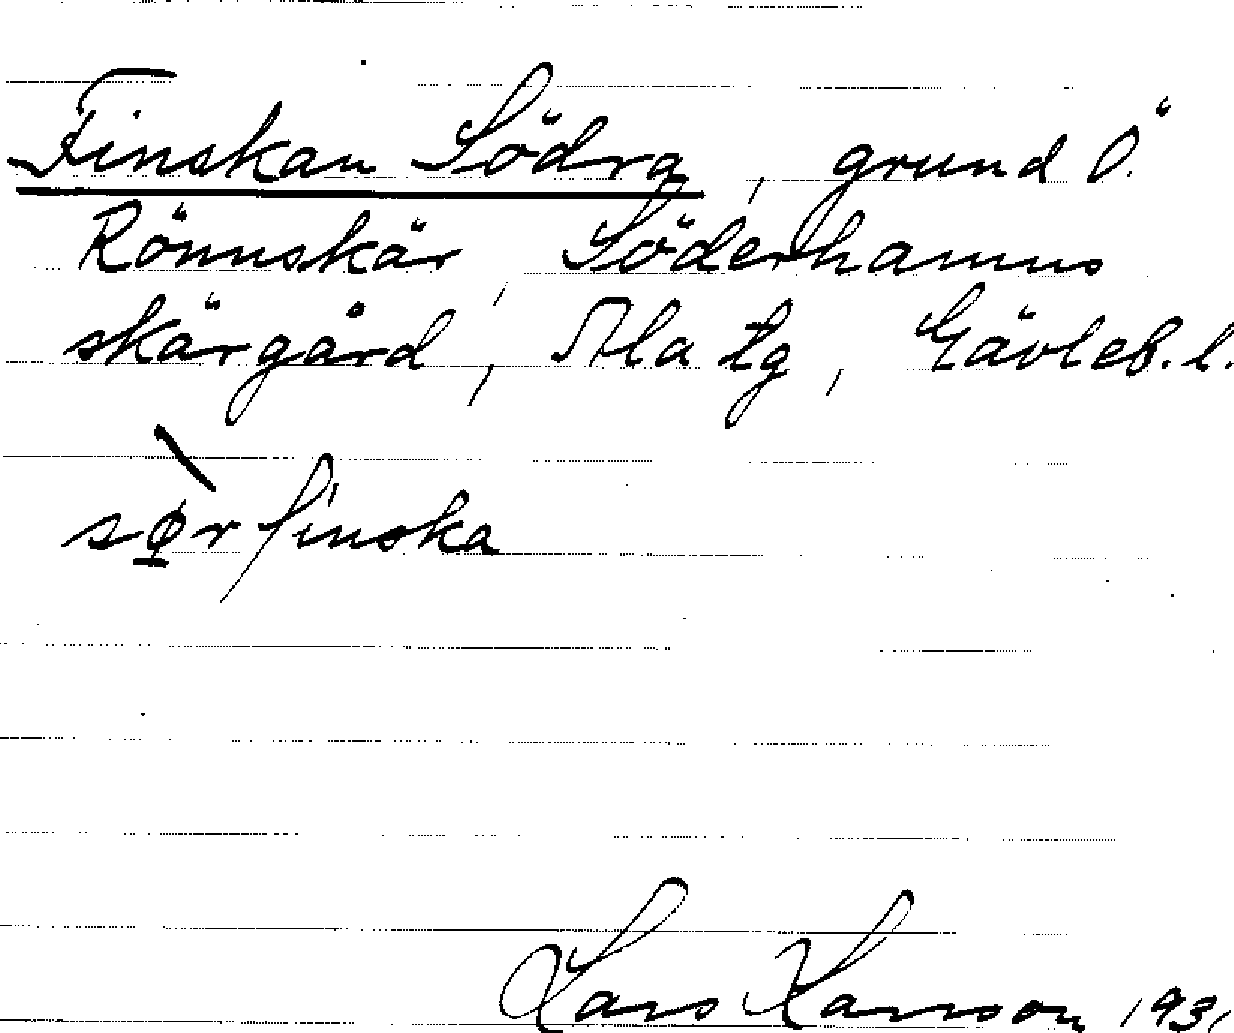 Finskan Södra, grund Ö.
Rönnskär, Söderhamns
skärgård, Ala tg, Gävleb. l.
sø̱̀r finska
Lars Hansson 1931